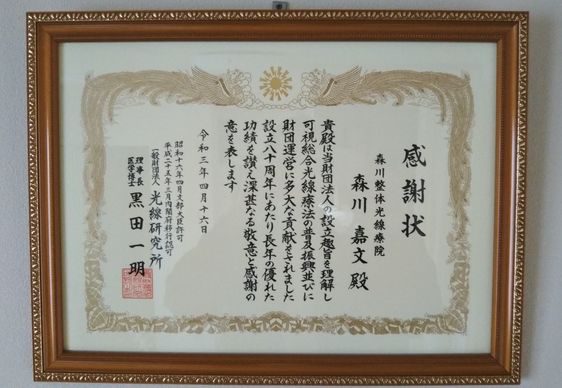 感謝状
森川整体光線療院
森川嘉文殿
貴殿は当財団法人の設立趣旨を理解し
可視総合光線療法の普及振興並びに
財団運営に多大な貢献をされました
設立八十周年にあたり長年の優れた
功績を讃え深甚なる敬意と感謝の
意を表します
令和三年四月十六日
昭和十六年四月文部大臣許可
平成二十五年三月内閣府移行認可
一般財団法人 光線研究所
理事長
医学博士 黒田一明